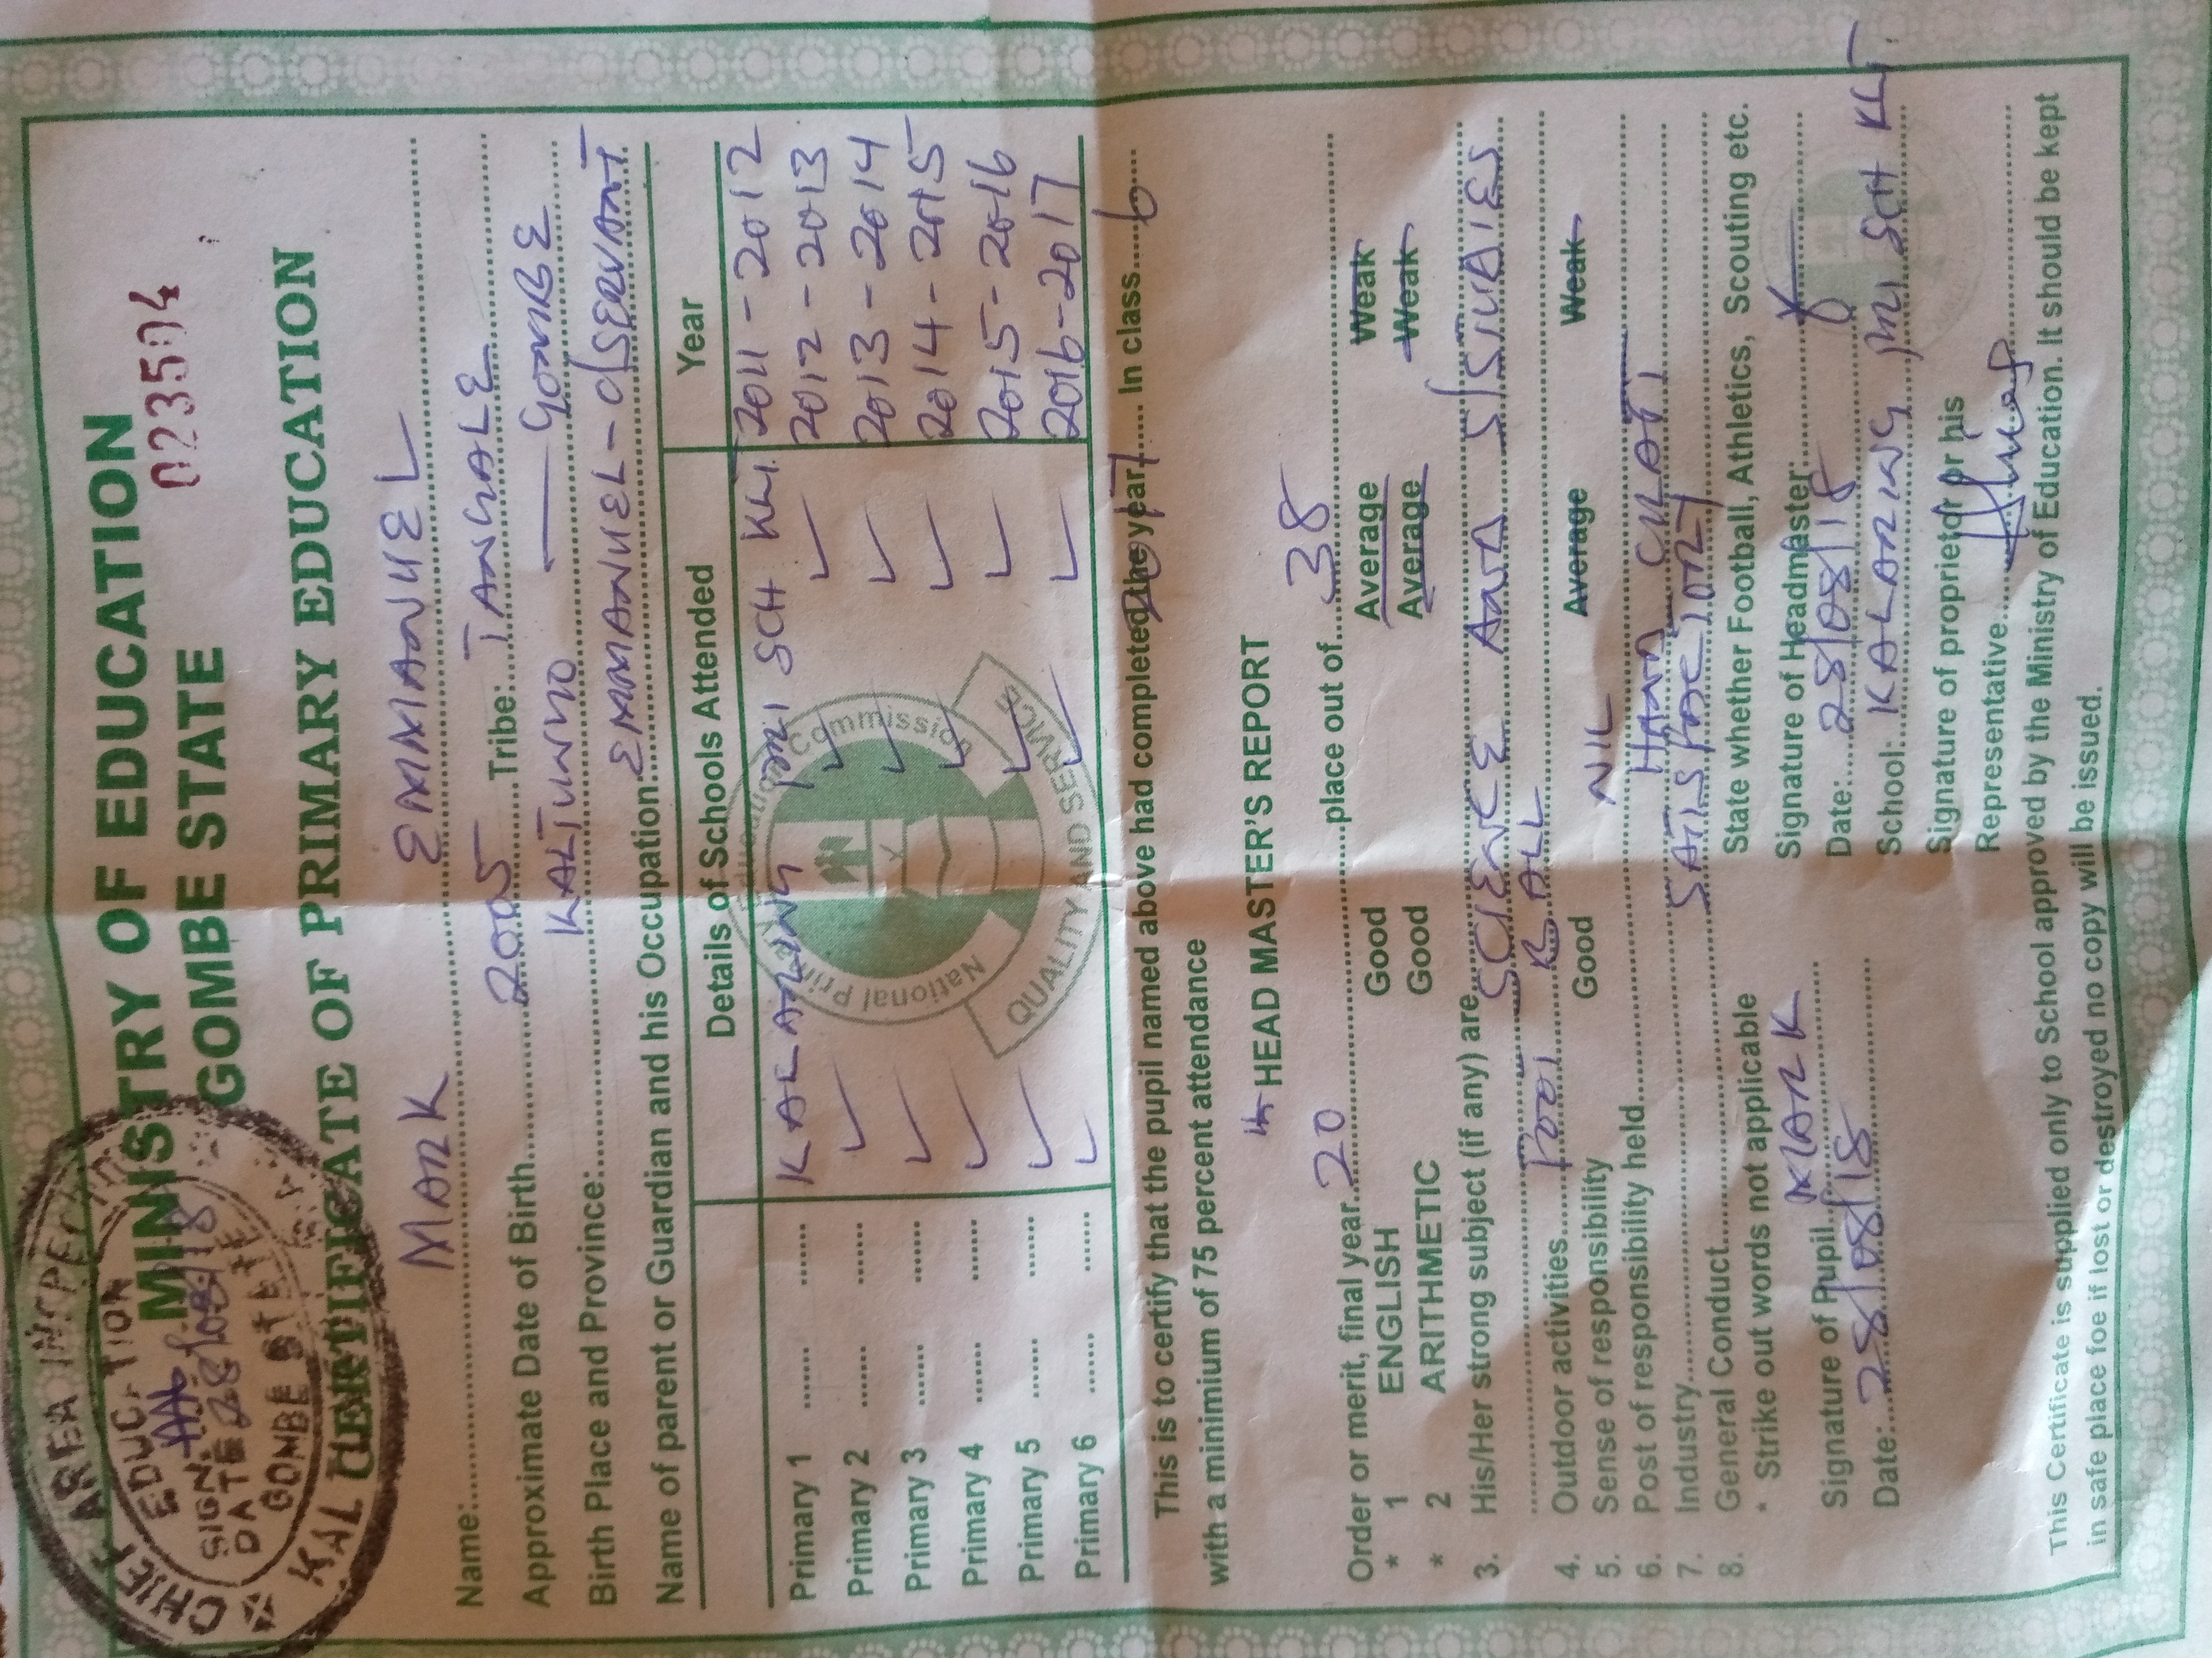 MINISTRY OF EDUCATION
GOMBE STATE
023504
CERTIFICATE OF PRIMARY EDUCATION
CHIEF AREA INSPECTOR
EDUCATION
SIGN
DATE 28/08/18
GOMBE STATE
Name: MARK EMMANUEL
Approximate Date of Birth 2005 Tribe: TANGALE
Birth Place and Province: KALTUNGO — GOMBE
Name of parent or Guardian and his Occupation: EMMANUEL - C/SERVANT
Details of Schools Attended Year
Primary 1 KALARING PRI SCH KLT 2011 - 2012
Primary 2 ✓ ✓ ✓ 2012 - 2013
Primary 3 ✓ ✓ ✓ 2013 - 2014
Primary 4 ✓ ✓ ✓ 2014 - 2015
Primary 5 ✓ ✓ ✓ 2015 - 2016
Primary 6 ✓ ✓ ✓ 2016 - 2017
National Primary Education Commission
QUALITY AND SERVICE
This is to certify that the pupil named above had completed the year 2017 In class 6
with a minimium of 75 percent attendance
HEAD MASTER'S REPORT
Order or merit, final year 20 place out of 38
* 1 ENGLISH Good Average Weak
* 2 ARITHMETIC Good Average Weak
3. His/Her strong subject (if any) are SCIENCE AND S/STUDIES
4. Outdoor activities FOOT BALL
5. Sense of responsibility Good Average Weak
6. Post of responsibility held NIL
7. Industry HAND CRAFT
8. General Conduct SATISFACTORY
* Strike out words not applicable State whether Football, Athletics, Scouting etc.
Signature of Pupil MARK Signature of Headmaster
Date: 28/08/18 Date: 28/08/18
School: KALARING PRI SCH KLT
Signature of proprietor or his
Representative
This Certificate is supplied only to School approved by the Ministry of Education. It should be kept
in safe place foe if lost or destroyed no copy will be issued.